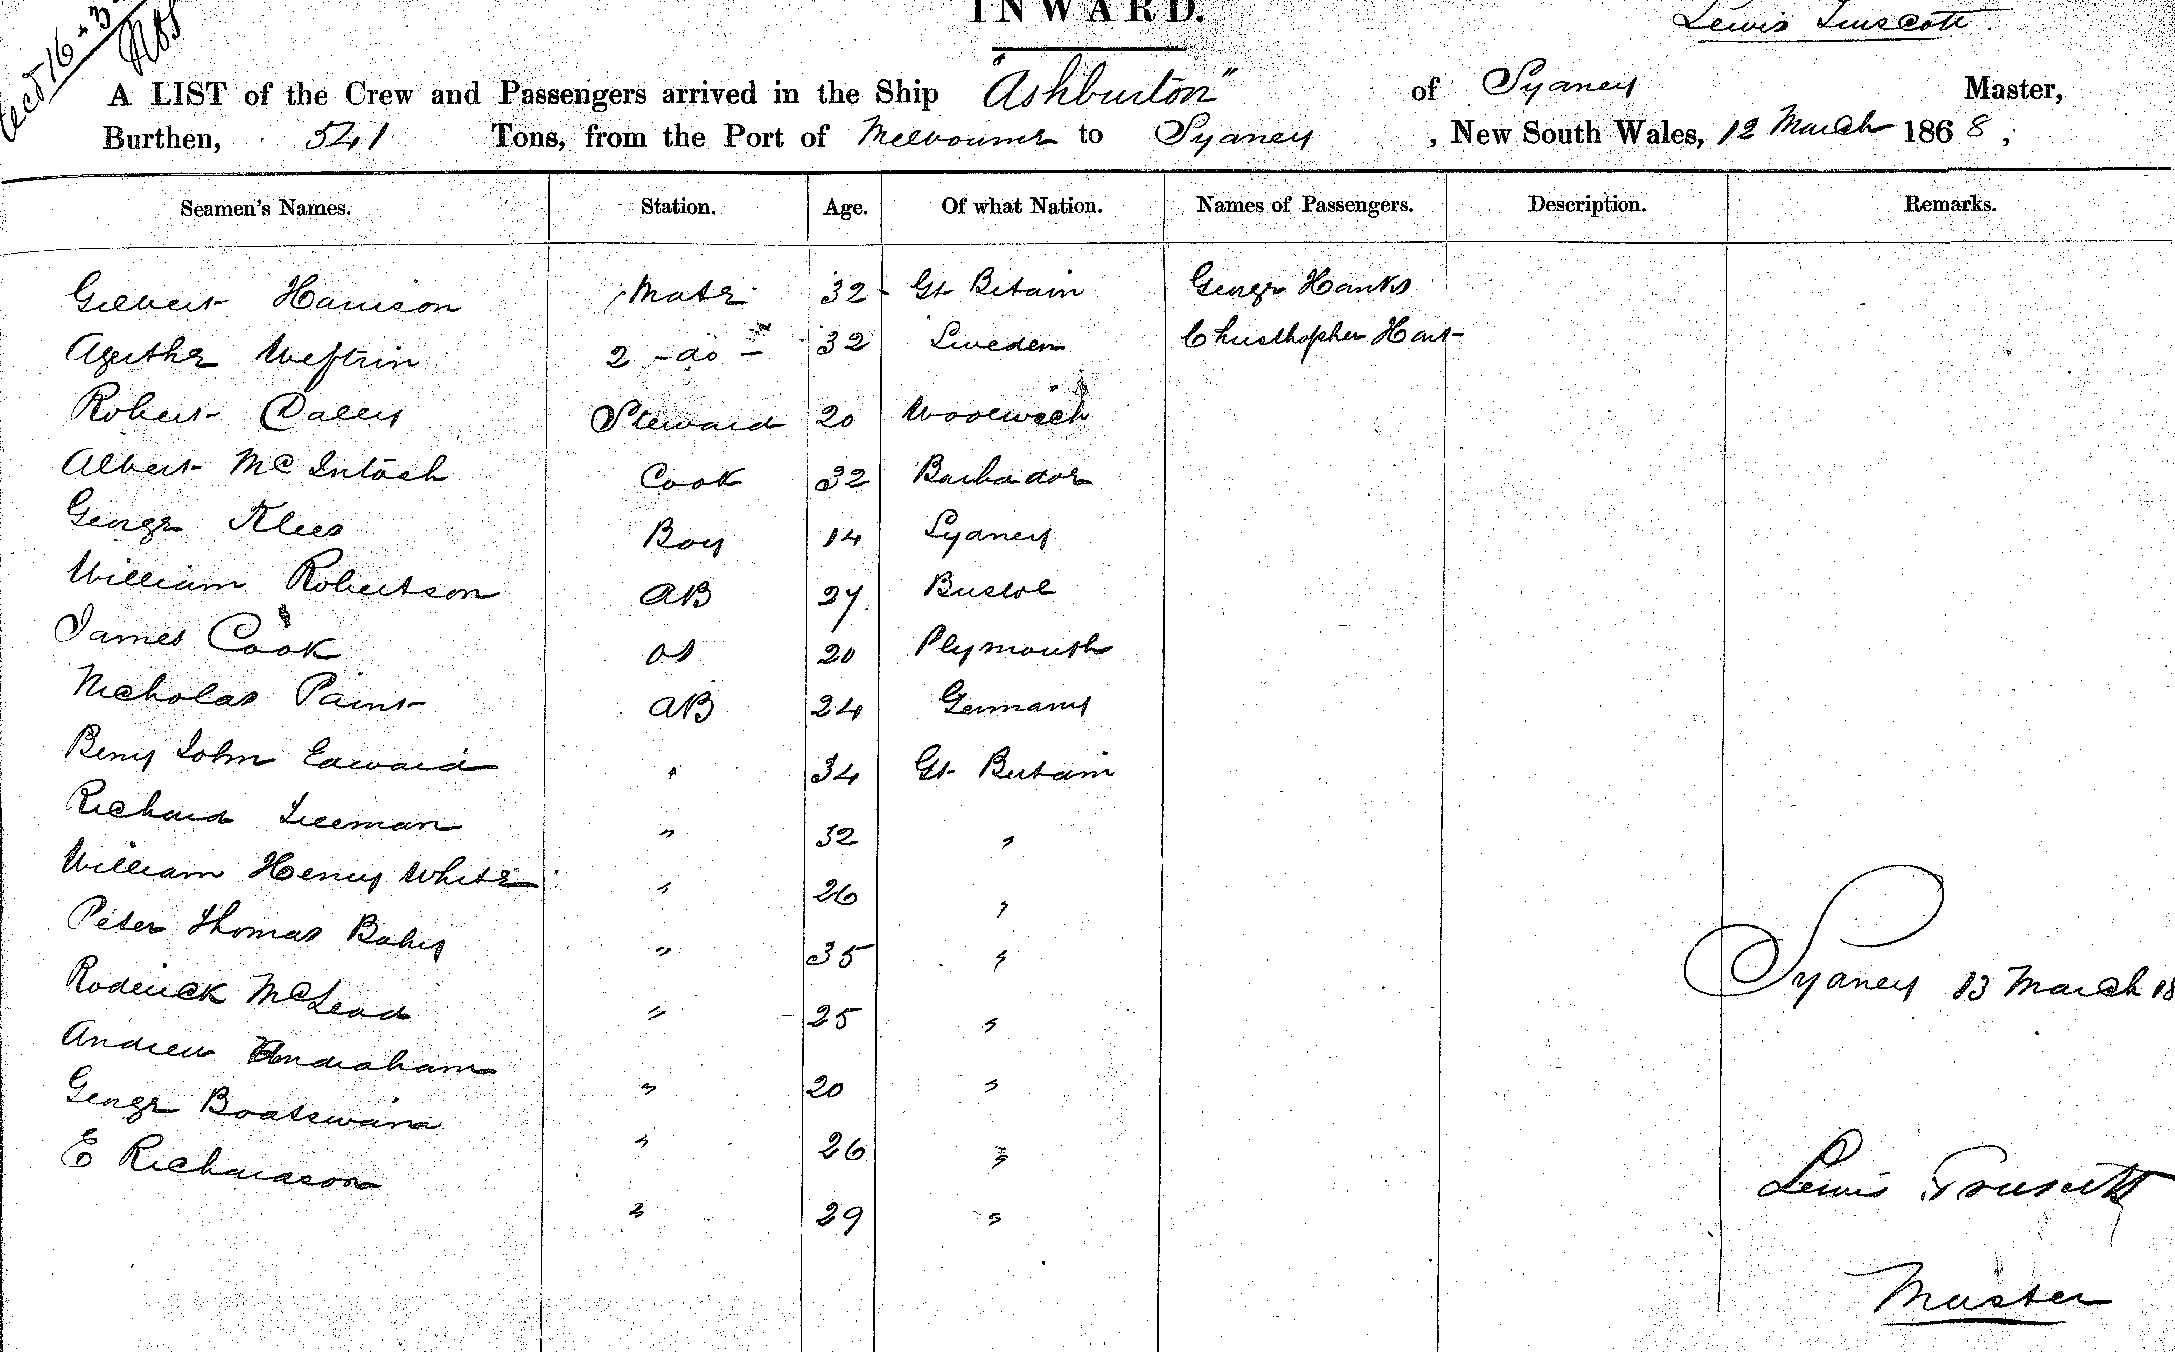 INWARD.
Lewis Truscott
A LIST of the Crew and Passengers arrived in the Ship "Ashburton" of Sydney Master,
Burthen, 541 Tons, from the Port of Melbourne to Sydney, New South Wales, 12 March 1868;
Seamen's Names. Station. Age. Of what Nation. Names of Passengers. Description. Remarks.
Gilbert Harrison Mate 32 Gt Britain George Hanks
2 do 32 Sweden Christhopher Hart
Robert Steward 20 Woolwich
Albert McIntosh Cook 32 Barbados
George Klees Boy 14 Sydney
William Robertson AB 27 Bristol
James Cook OS 20 Plymouth
Nicholas Paint AB 24 Germany
Beny John Edward " 34 Gt Britain
Richard " 32 "
William Henry White " 26 "
Peter Thomas " 35 "
Roderick McLeod " 25 "
Andrew " 20 "
George Boatswain " 26 "
E Richardson " 29 "
Sydney 13 March 18
Lewis Truscott
Master